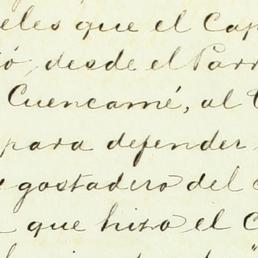 eles que el Cap
ó, desde el Parr
Cuencamé, al
para defender
gostadero del
que hizo el C